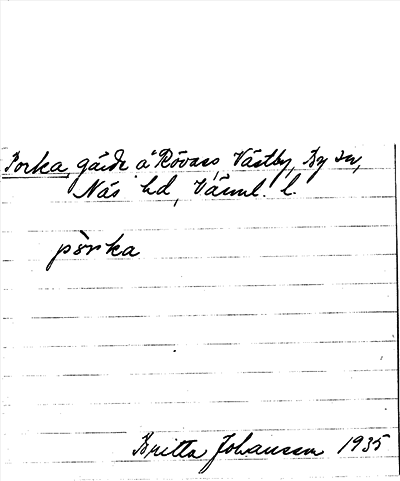 Porka, gärde å Rövass, Västby, By sn,
Näs hd, Värml. l.
pòrka
Britta Johansson 1935